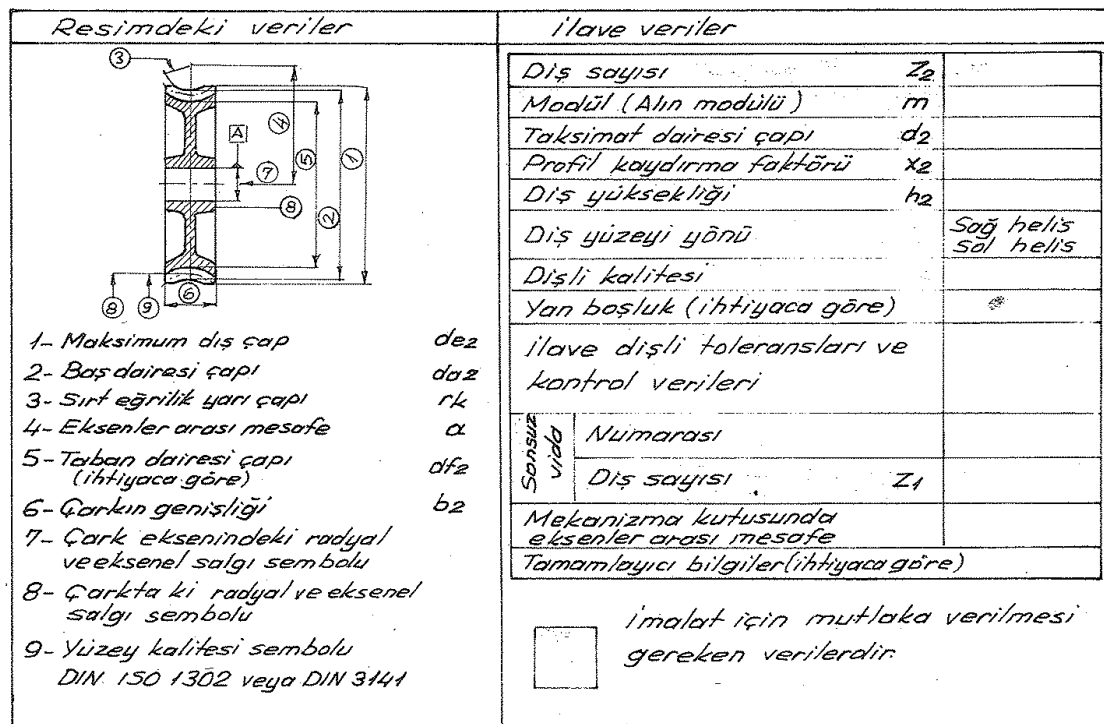 Resimdeki veriler
3
4
A
5
1
7
8
2
6
8
9
1- Maksimum dış çap de2
2- Baş dairesi çapı da2
3- Sırt eğrilik yarı çapı rk
4- Eksenler arası mesafe a
5- Taban dairesi çapı df2
(ihtiyaca göre)
6- Çarkın genişliği b2
7- Çark eksenindeki radyal
ve eksenel salgı sembolu
8- Çarkta ki radyal ve eksenel
salgı sembolu
9- Yüzey kalitesi sembolu
DIN ISO 1302 veya DIN 3141
İlave veriler
Diş sayısı Z2
Modül (Alın modülü) m
Taksimat dairesi çapı d2
Profil kaydırma faktörü x2
Diş yüksekliği h2
Diş yüzeyi yönü Sağ helis
Sol helis
Dişli kalitesi
Yan boşluk (ihtiyaca göre)
İlave dişli toleransları ve
kontrol verileri
Sonsuz
vida
Numarası
Diş sayısı Z1
Mekanizma kutusunda
eksenler arası mesafe
Tamamlayıcı bilgiler (ihtiyaca göre)
İmalat için mutlaka verilmesi
gereken verilerdir.